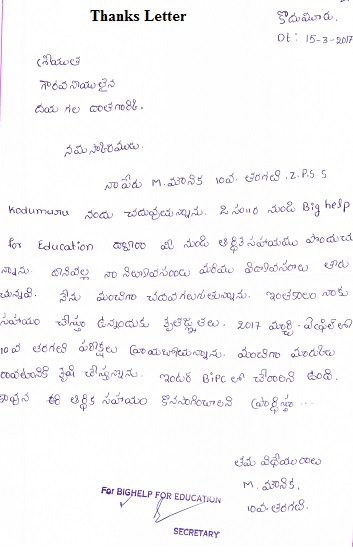 Thanks Letter
కొడుమూరు.
Dt: 15-3-2017
శ్రీయుత
గౌరవనీయులైన
దయ గల దాతగారికి.
నమస్కారములు.
నా పేరు M. మౌనిక 10వ. తరగతి. Z.P.S.S
Kodumuru నందు చదువుచున్నాను. 2 సం॥ల నుండి Big help
for Education ద్వారా మీ నుండి ఆర్థిక సహాయము పొందుచు
న్నాను. దానివల్ల నా నిత్యావసరాలు మరియు విద్యావసరాలు
చున్నవి. నేను మంచిగా చదవగలుగుతున్నాను. ఇంతకాలం నాకు
సహాయం చేస్తూ ఉన్నందుకు కృతజ్ఞతలు. 2017 మార్చి-ఏప్రిల్ లో
10వ తరగతి పరీక్షలు వ్రాయబోయున్నాను. మంచిగా మార్కులు
రావటానికి కృషి చేస్తున్నాను. ఇంటర్ BiPC లో చేరాలని ఉంది.
కావున ఈ ఆర్థిక సహాయం కొనసాగించాలని ప్రార్థిస్తూ...
తమ విధేయురాలు
M. మౌనిక,
10వ. తరగతి.
For BIGHELP FOR EDUCATION
SECRETARY